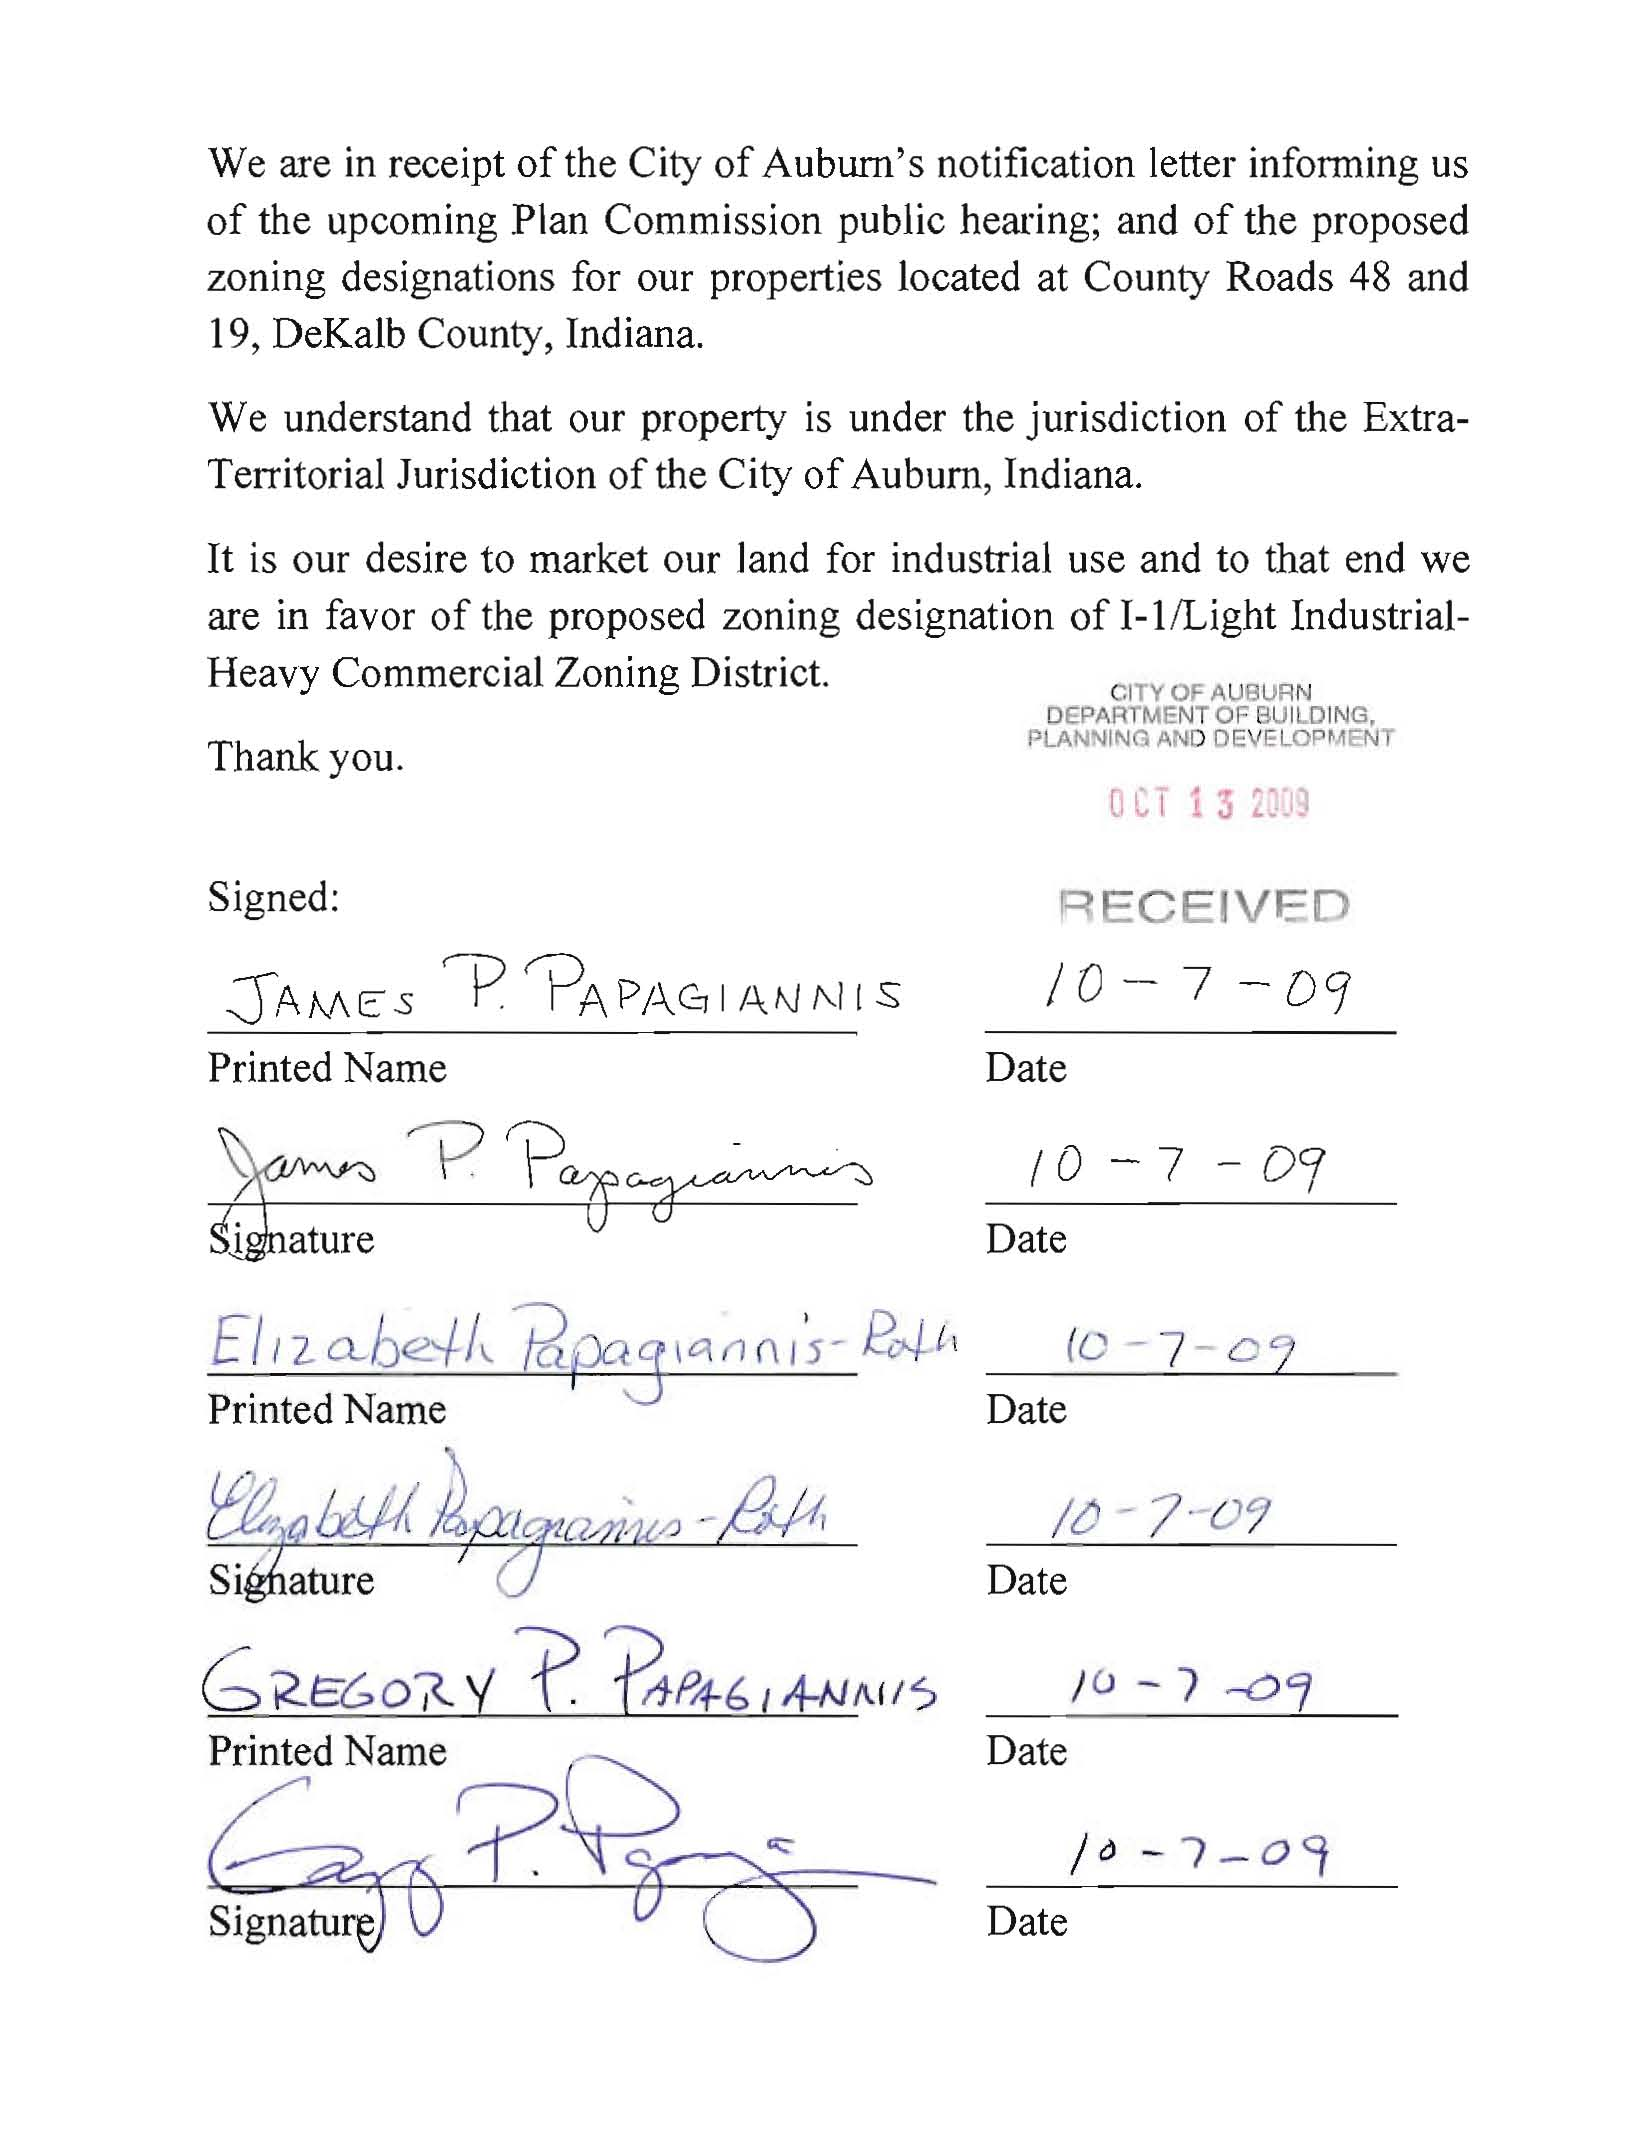 We are in receipt of the City of Auburn's notification letter informing us
of the upcoming Plan Commission public hearing; and of the proposed
zoning designations for our properties located at County Roads 48 and
19, DeKalb County, Indiana.
We understand that our property is under the jurisdiction of the Extra-
Territorial Jurisdiction of the City of Auburn, Indiana.
It is our desire to market our land for industrial use and to that end we
are in favor of the proposed zoning designation of I-1/Light Industrial-
Heavy Commercial Zoning District.
CITY OF AUBURN
DEPARTMENT OF BUILDING,
PLANNING AND DEVELOPMENT
Thank you.
OCT 13 2009
Signed:
RECEIVED
JAMES P. PAPAGIANNIS 10-7-09
Printed Name Date
James P. Papagiannis 10-7-09
Signature Date
Elizabeth Papagiannis-Roth 10-7-09
Printed Name Date
Elizabeth Papagiannis-Roth 10-7-09
Signature Date
GREGORY P. PAPAGIANNIS 10-7-09
Printed Name Date
P. 10-7-09
Signature Date